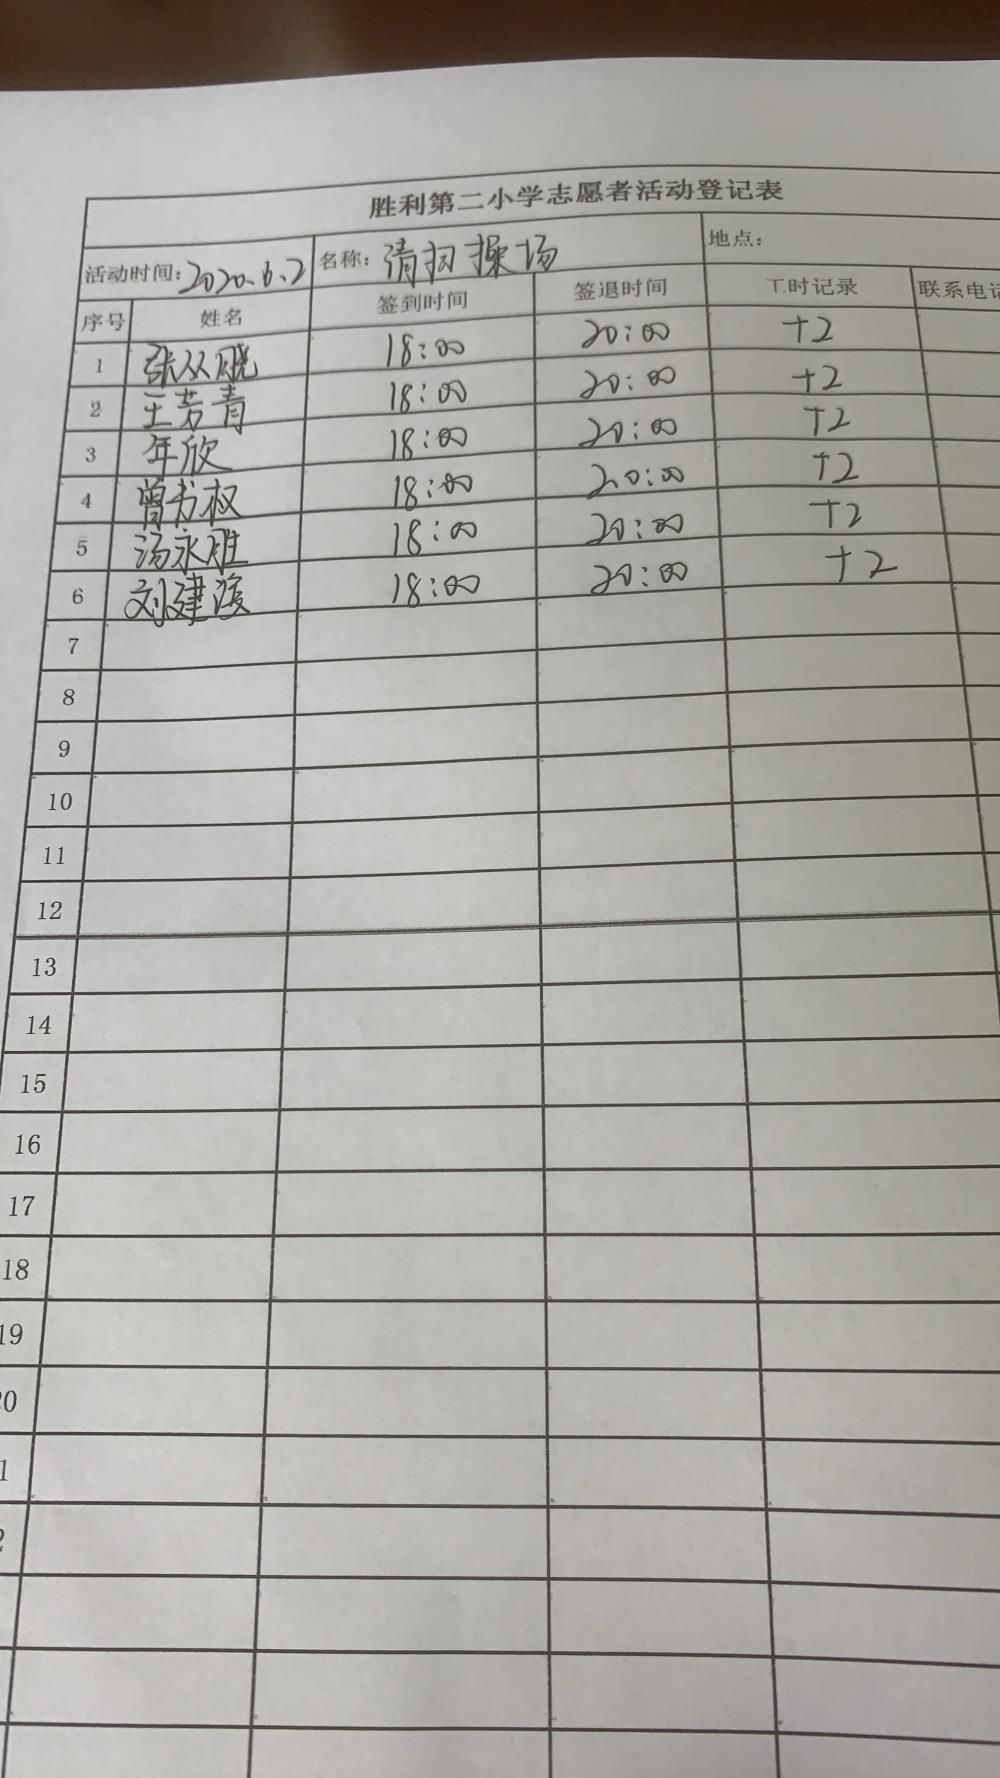 胜利第二小学志愿者活动登记表
活动时间：2020.6.2 名称：清扫操场 地点：
序号 姓名 签到时间 签退时间 工时记录 联系电话
1 张从晓 18:00 20:00 +2
2 王芳青 18:00 20:00 +2
3 年欣 18:00 20:00 +2
4 曾书权 18:00 20:00 +2
5 汤永胜 18:00 20:00 +2
6 刘建 18:00 20:00 +2
7
8
9
10
11
12
13
14
15
16
17
18
19
0
1
2